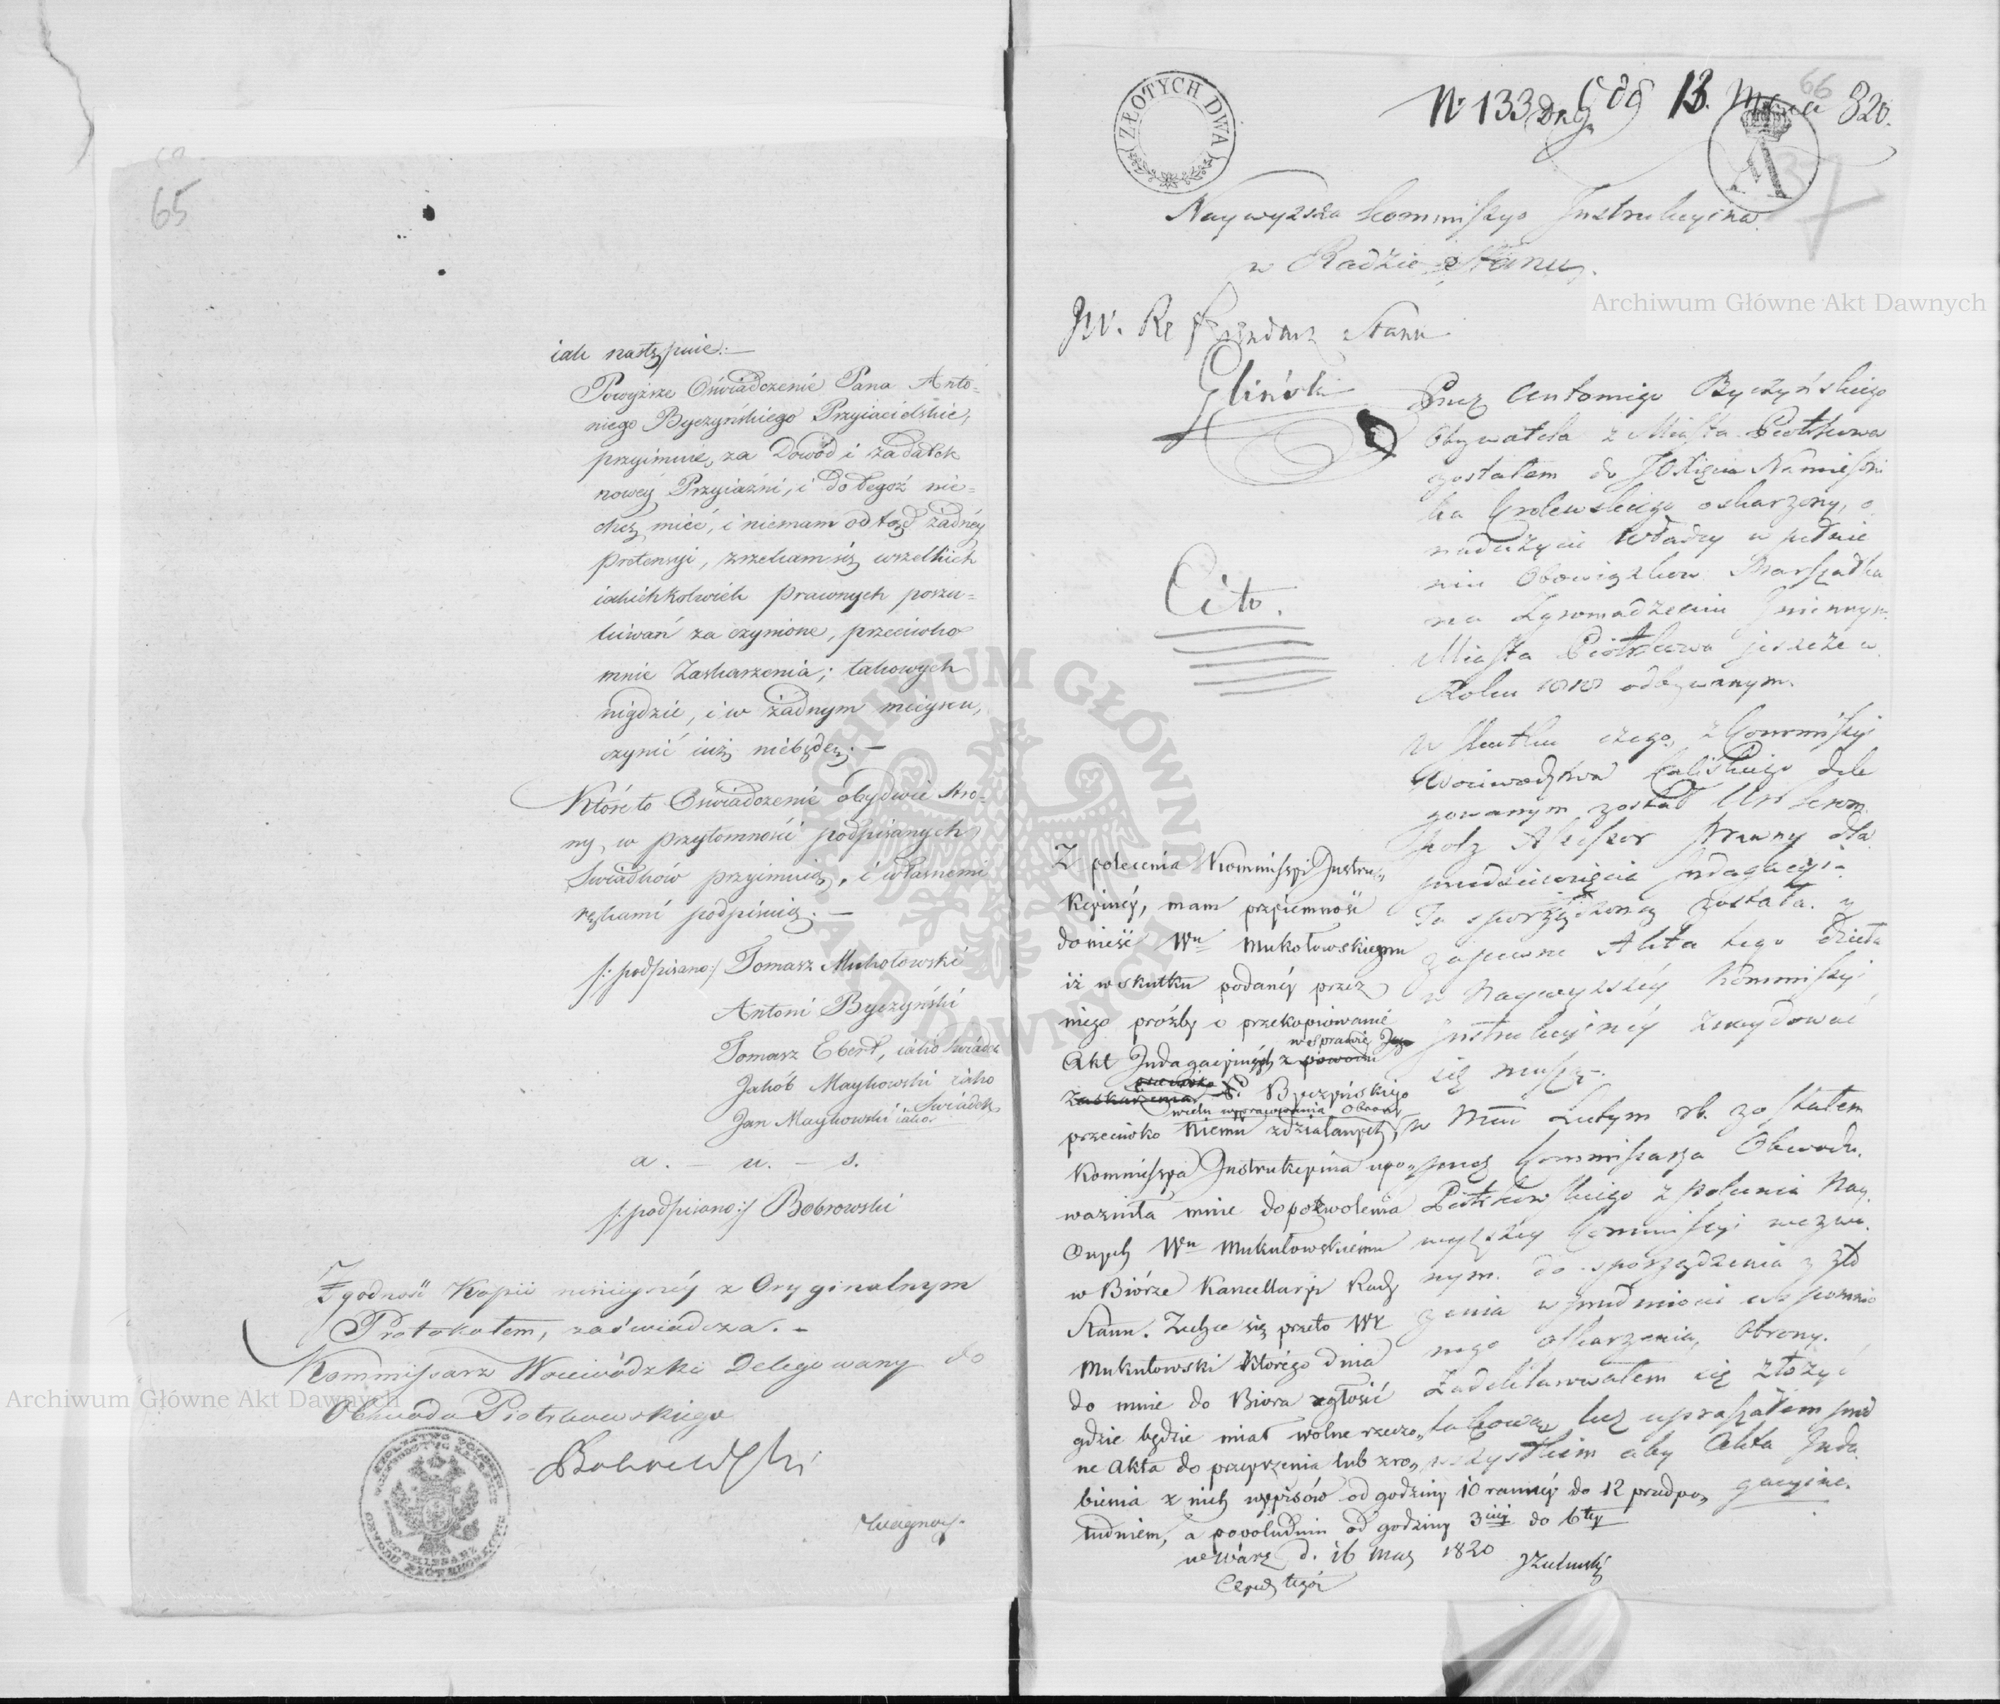 65
iak następuie:—
Powyższe Oświadczenie Pana Anto-
niego Byczyńskiego Przyiacielskie,
przyimuię, za Dowód i zadatek
nowey Przyiaźni, i do tegoż nie-
chcę mieć, i niemam odtąd żadney
pretensyi, zrzekam się wszelkich
iakichkolwiek prawnych poszu-
kiwań za czynione, przeciwko
mnie Zaskarzenia; takowych
nigdzie, i w żadnym mieyscu,
czynić iuż niebędę.—
Któreto Oświadczenie obydwie Stro-
ny, w przytomności podpisanych
Swiadków przyimuią, i własnemi
rękami podpisuią.—
/:podpisano:/ Tomasz Mukołowski
Antoni Byczyński
Tomasz Ebert, iako Swiadek
Jakób Maykowski iako
Swiadek
Jan Maykowski iako
a. — u. — s.
/:podpisano:/ Bobrowski
Zgodność Kopii ninieyszéy z Oryginalnym
Protokołem, zaświadcza.—
Kommissarz Woiewódzki Delegowany do
Obwodu Piotrkowskiego
Bobrowski
ZŁOTYCH DWA
66
N. 133 13. 820.
Naywyższa Kommissyo Instrukcyina
w Radzie Stanu.
JW. Referendarz Stanu
Gliński
Cito.
Przez Antoniego Byczyńskiego
Obywatela z Miasta Piotrkowa
zostałem do JO Xięcia Namiestni
ka Krolewskiego oskarzony, o
nadużycie Władzy w pełnie
niu Obowiązkow Marszałka
na Zgromadzeniu Gminnym
Miasta Piotrkowa jeszcze w
Roku 1818 odbywanym.
W skutku czego, z Kommissyi
Woiewodztwa Kaliskiego dele
gowanym został
Assessor Prawny dla
przedsięwzięcia Indagacyi.
Ta sporządzoną została. y
zapewne Akta tego dzieła
w Naywyższey Kommissyi
Instrukcyiney znaydować
się muszą.
w Mcu Lutym rb. zostałem
przez Kommissarza Obwodu
Piotrkowskiego z polecenia Nay
wyższey Kommissyi wezwa
nym. do sporządzenia y zło
zenia w przedmiocie wspomnio
nego oskarzenia, Obrony.
Zadeklarowałem się złożyć
takową, lecz upraszałem przed
wszystkiem aby Akta Inda
gacyine.
Z polecenia Kommissyi Instru-
kcyinéy, mam przyiemność
donieść Wu Mukołowskiemu
iż w skutku podanéy przez
niego prośby o przekopiowanie
w Sprawie
Akt Indagacyinych z powodu
zaskarzenia P. Byczyńskiego
celu wyprawowania Obrony
przeciwko Niemu zdziałanych,
Kommissya Instrukcyina upo-
ważniła mnie do pozwolenia
Onych Wu Mukułowskiemu
w Biórze Kancellaryi Rady
Stanu. Zechce się przeto WP
Mukułowski którego dnia
do mnie do Biora zgłosić
gdzie będzie miał wolne rzeczo-
ne Akta do przeyrzenia lub zro-
bienia z nich wypisów od godziny 10 rannéy do 12 przedpo-
łudniem, a popołudniu od godziny 3ciéy do 6tey
w Warsz d. 16 Mar 1820
Archiwum Główne Akt Dawnych
Archiwum Główne Akt Dawnych
ARCHIWUM GŁÓWNE AKT DAWNYCH